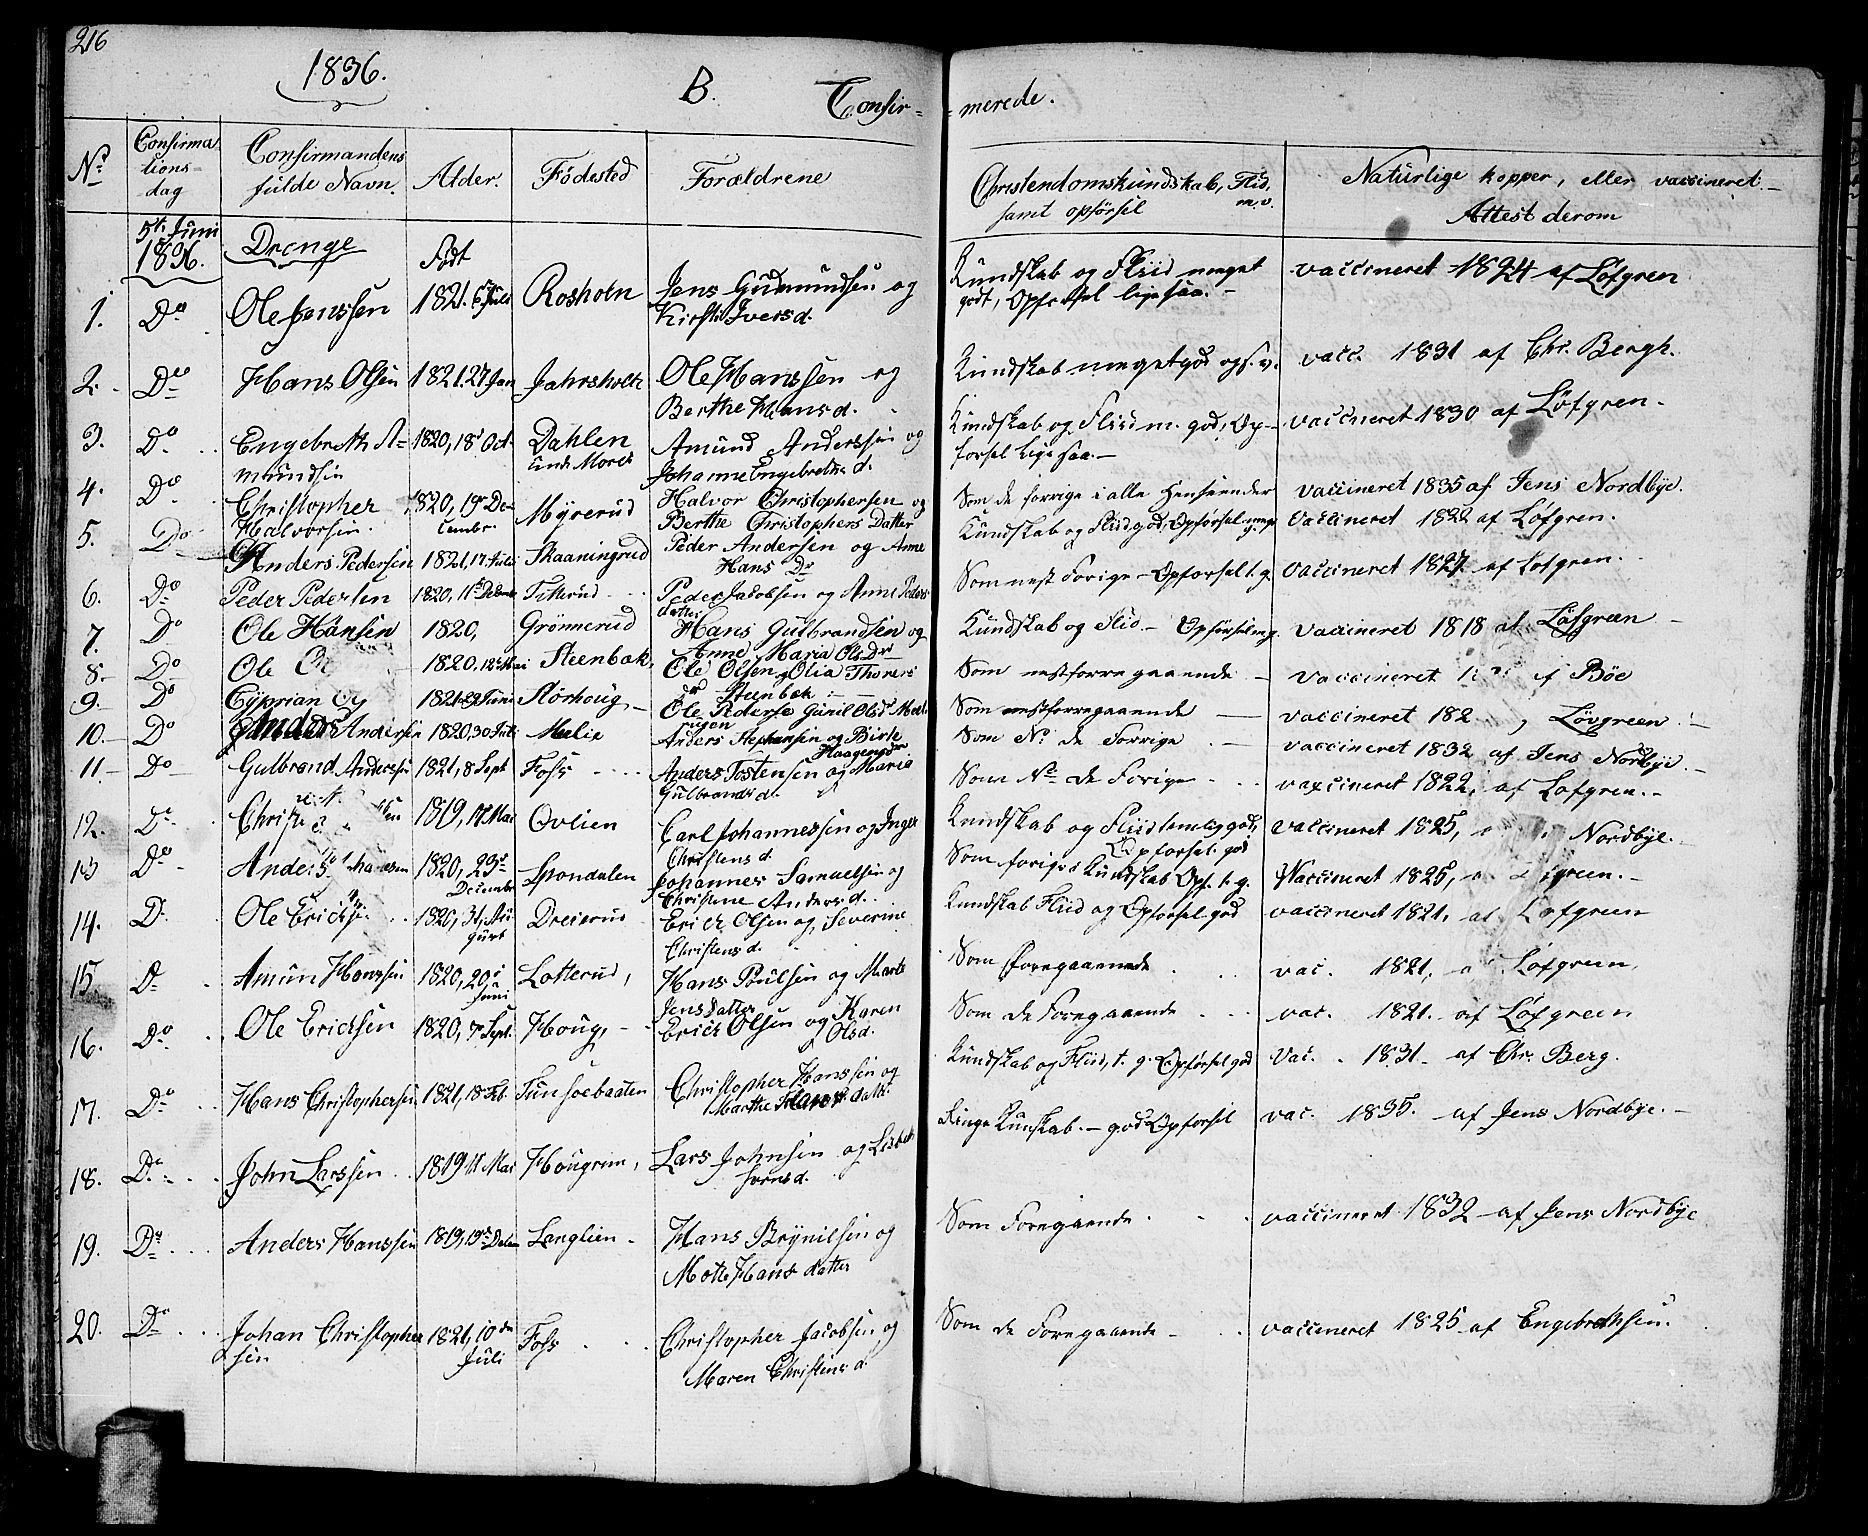 216
1836.
B.
Confir-
-merede.
No
Confirma
tions-
dag
Confirmandens
fulde Navn.
Alder.
Födested
Forældrene
Christendomskundskab, Flid,
m.v.
samt opførsel
Naturlige kopper, eller vaccineret
Attest derom
5te Juni
1836.
Drenge
Født
1. Do Ole Jenssen 1821. 6 Juli Rosholm Jens Gudmundsen og
Kirsti Iversd.
Kundskab og Fliid meget
godt, Opførsel ligesaa.
vaccineret 1824 af Löfgren
2. Do Hans Olsen 1821. 27 Jan Jahrsholt Ole Hanssen og
Berthe Hansd.
Kundskab meget god og s.v. vacc. 1831 af Chr. Bergh.
3. Do Engebreth A=
mundsen
1820, 18 Oct. Dahlen
und. Morer
Amund Anderssen og
Johanne Engebrethsd.
Kundskab og Fliid m. god, Op-
forsel ligesaa.
vaccineret 1830 af Löfgren.
4. Do Christopher
Halvorsen
1820, 19 De-
cembr.
Myrerud Halvor Christophersen og
Berthe Christophers Datter
Som de forrige i alle Henseender vaccineret 1835 af Jens Nordbye.
5. Do Anders Pedersen 1821, 17 Juli Skaaningrud Peder Andersen og Anne
Hans Dr
Kundskab og Fliid god, Opførsel meget g. Vaccineret 1822 af Löfgren.
6. Do Peder Pedersen 1820, 11 Decmb Titterud Peder Jacobsen og Anne Peders
datter
Som nest Forige - Opförsel t. g. vaccineret 1827 af Löfgren.
7. Do Ole Hansen 1820, Grönnerud Hans Gulbrandsen og
Anne Maria Ols Dr
Kundskab og Flid - Opførsel m.g. vaccineret 1818 af Löfgreen
8. Do Ole 1820, 12 Mai Steenbæk Ole Olsen Olia Thorers
Dr Steenbæk
Som nestforregaaende vaccineret af Böe
9. Do Cyprian 1821 29 Juni Storhoug Ole Peders Gunil Olsd
Som nestforregaaende vaccineret 182 Lövgreen
10. Do Anders Andersen 1820, 30 Juli Melie Anders Stephansen og Birte
Haagensdr
Som No de Forrige vaccineret 1832 af Jens Nordbye.
11 Do Gulbrand Anderssen 1821, 8 Sept Foss Anders Tostensen og Marie
Gulbrandsd.
Som No de Forige vaccineret 1822, af Löfgren.
12. Do Christ 1819, 17 Mai Ovlien Carl Johannessen og Inger
Christensd.
Kundskab og Fliid temelig god,
Opførsel god
vaccineret 1825, Nordbye.
13 Do Anders 1820, 23de
December
Spondalen Johannes Samuelsen og
Christine Andersd.
Som forige i Kundskab Opf. t. g. Vaccineret 1825,
14. D. Ole Ericksen 1820, 31 Au
gust
Dreierud Erick Olsen og Severine
Christensd.
Kundskab Fliid og Opførsel god vaccineret 1821. af Löfgreen
15 D Amun Hanssen 1820, 20
Juni
Lotterud, Hans Poulsen og Marte
Jens Datter
Som Foregaaende vac. 1821, Löfgreen.
16. Do Ole Ericksen 1820, 7 Sept. Houg, Erick Olsen og Karen
Olsd.
Som de Foregaaende vac. 1821. af Löfgreen
17. Do Hans Christophersen 1821, 18 Feb. Tunsoebaaten Christopher Hanssen og
Marthe
Kundskab og Fliid, t. g. Opførsel god Vac. 1831 af Chr. Berg.
18. Do John Larssen 1819 11 Mai Hougrim, Lars Johnsen og Lisbeth
Ringe Kunskab. - god Opførsel vac. 1835. af Jens Nordbye.
19. Do Anders Hanssen 1819, 19 Decm Langlien Hans Brynilsen og
Mette Hans datter
Som Foregaaende vaccineret 1832 af Jens Nordbye
20. Do Johan Christopher
sen
1821, 10de
Juli
Foss Christopher Jacobsen og
Maren Christensd.
Som de Foregaaende vaccineret 1825 af Engebrethsen.